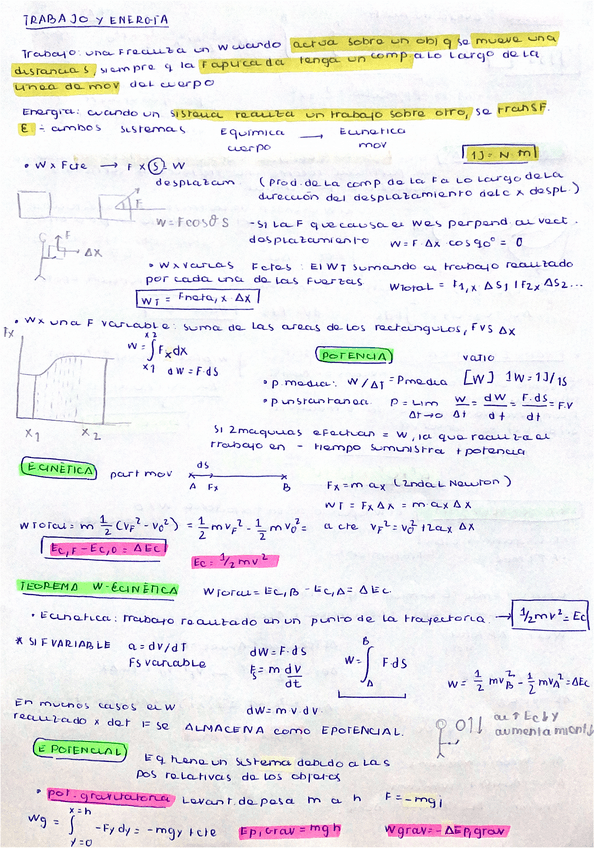 TRABAJO Y ENERGÍA
Trabajo: una F realiza un W cuando actua sobre un obj q se mueve una
distancia s, siempre q la F aplicada tenga un comp a lo largo de la
linea de mov del cuerpo
Energia: cuando un sistema realiza un trabajo sobre otro, se transf.
E ÷ ambos sistemas Equimica → Ecinetica
cuerpo mov
1J = N·m
• W x F cte → F x S = W
desplazam. (prod. de la comp de la F a lo largo de la
dirección del desplazamiento del c x despl.)
F
W = F cosθ S - Si la F que causa el W es perpend. al vect.
desplazamiento W = F·Δx cos 90° = 0
F
Δx
• W x varias F ctes: El WT sumando el trabajo realizado
por cada una de las fuerzas
WT = Fneta,x · Δx
• W x una F variable: suma de las areas de los rectangulos, F vs Δx
Fx
x1 x2
W = ∫ x1 x2 Fx dx
dW = F·ds
POTENCIA vatio
• p media: W/ΔT = P media [W] 1W = 1J/1s
• p instantanea: P = Lim Δt→0 W/Δt = dW/dt = F·ds/dt = F·V
si 2 maquinas efectuan = W, la que realiza el
trabajo en - tiempo suministra + potencia
E CINÉTICA part mov ds
A Fx B
Fx = m ax (2nda L Newton)
WT = Fx Δx = m ax Δx
W Total = m 1/2 (vF² - v0²) = 1/2 m vF² - 1/2 m v0² = a cte vF² = v0² + 2ax Δx
Ec,F - Ec,0 = ΔEc
Ec = 1/2 mv²
TEOREMA W-ECINÉTICA W Total = Ec,B - Ec,A = ΔEc
• Ecinetica: trabajo realizado en un punto de la trayectoria. → 1/2 mv² = Ec
* SI F VARIABLE a = dv/dT
Fs variable
dW = F·ds
Fs = m dv/dt
W = ∫ A B F ds
W = 1/2 mvB² - 1/2 mvA² = ΔEc
En muchos casos el W dW = m v dv
realizado x det F se ALMACENA como EPOTENCIAL.
al ↑ Ec↓ y
E POTENCIAL E q tiene un sistema debido a las
pos relativas de los objetos
• pot. gravitatoria Levant. de pesa m a h F = -mg j
Wg = ∫ y=0 x=h -Fy dy = -mgy + cte Ep,grav = mgh Wgrav = -ΔEp,grav